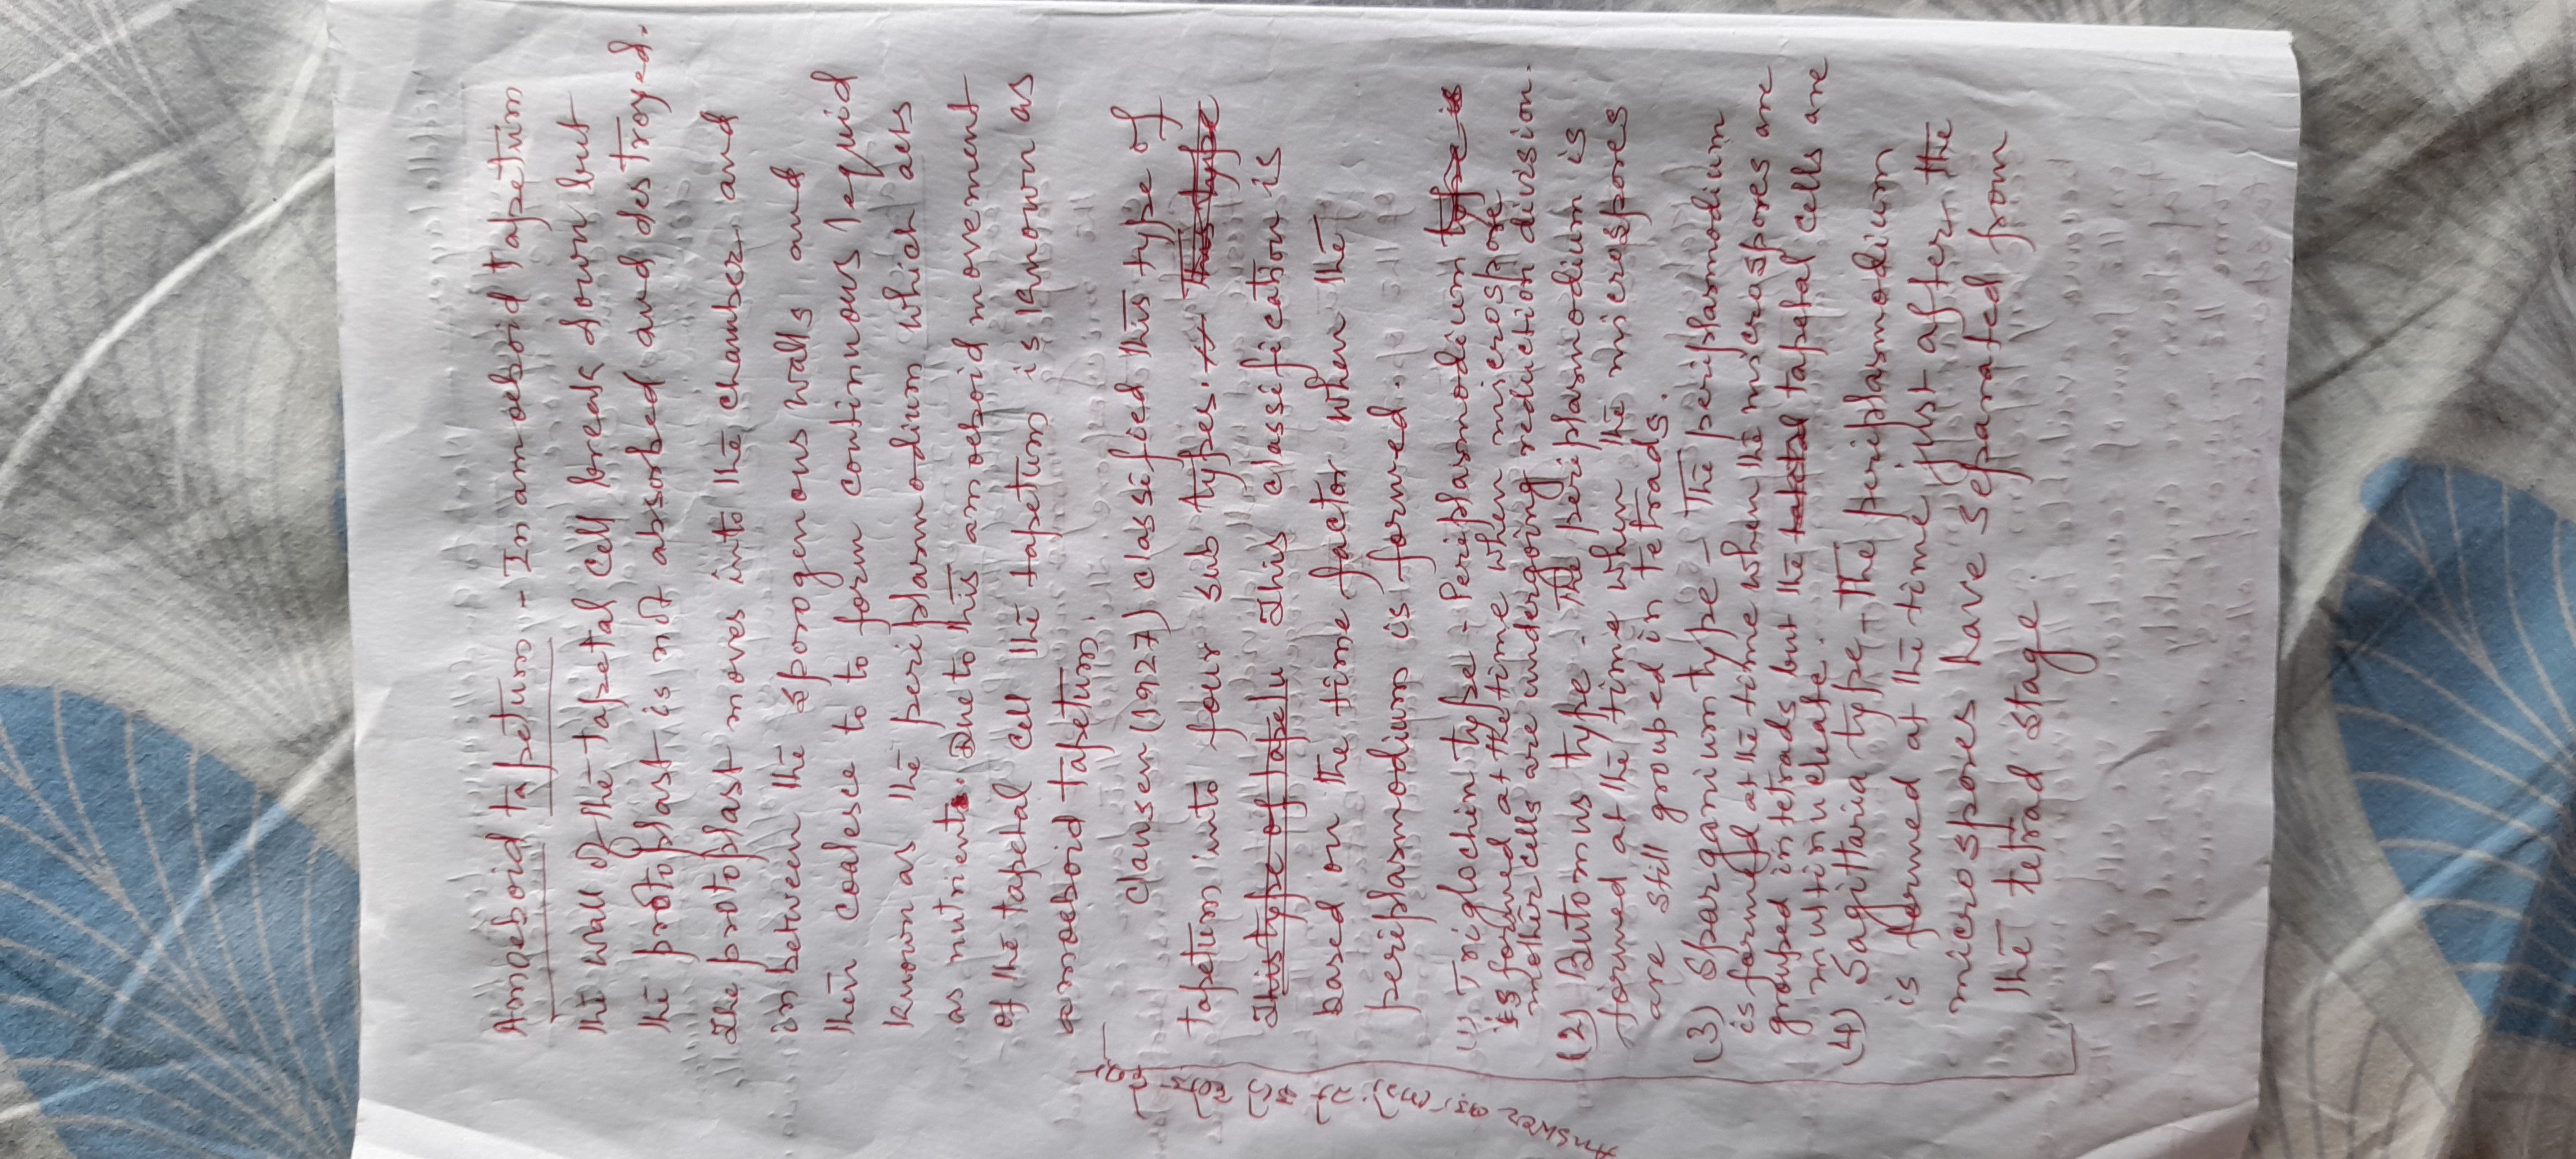 Amoeboid tapetum - In amoeboid tapetum
the wall of the tapetal cell break down but
the protoplast is not absorbed and destroyed.
The protoplast moves into the chamber and
in between the sporogenous walls and
then coalesce to form continuous lequid
known as the periplasmodium which acts
as nutrients. Due to this amoeboid movement
of the tapetal cell the tapetum is known as
amoeboid tapetum.
Clausen (1927) classified this type of
tapetum into four sub types. This type
This type of tapetu This classefication is
based on the time factor when the
periplasmodium is formed.
(1) Triglochin type - Periplasmodium type is
is formed at the time when microspore
mother cells are undergoing reduction division.
(2) Butomus type - The periplasmodium is
formed at the time when the microspores
are still grouped in tetrads.
(3) Sparganium type - The periplasmodium
is formed at the time when the microspores are
grouped in tetrads but the tapetal cells are
multinucleate.
(4) Sagittaria type - The periplasmodium
is formed at the time just after the
microspores have separated from
the tetrad stage.
Answer